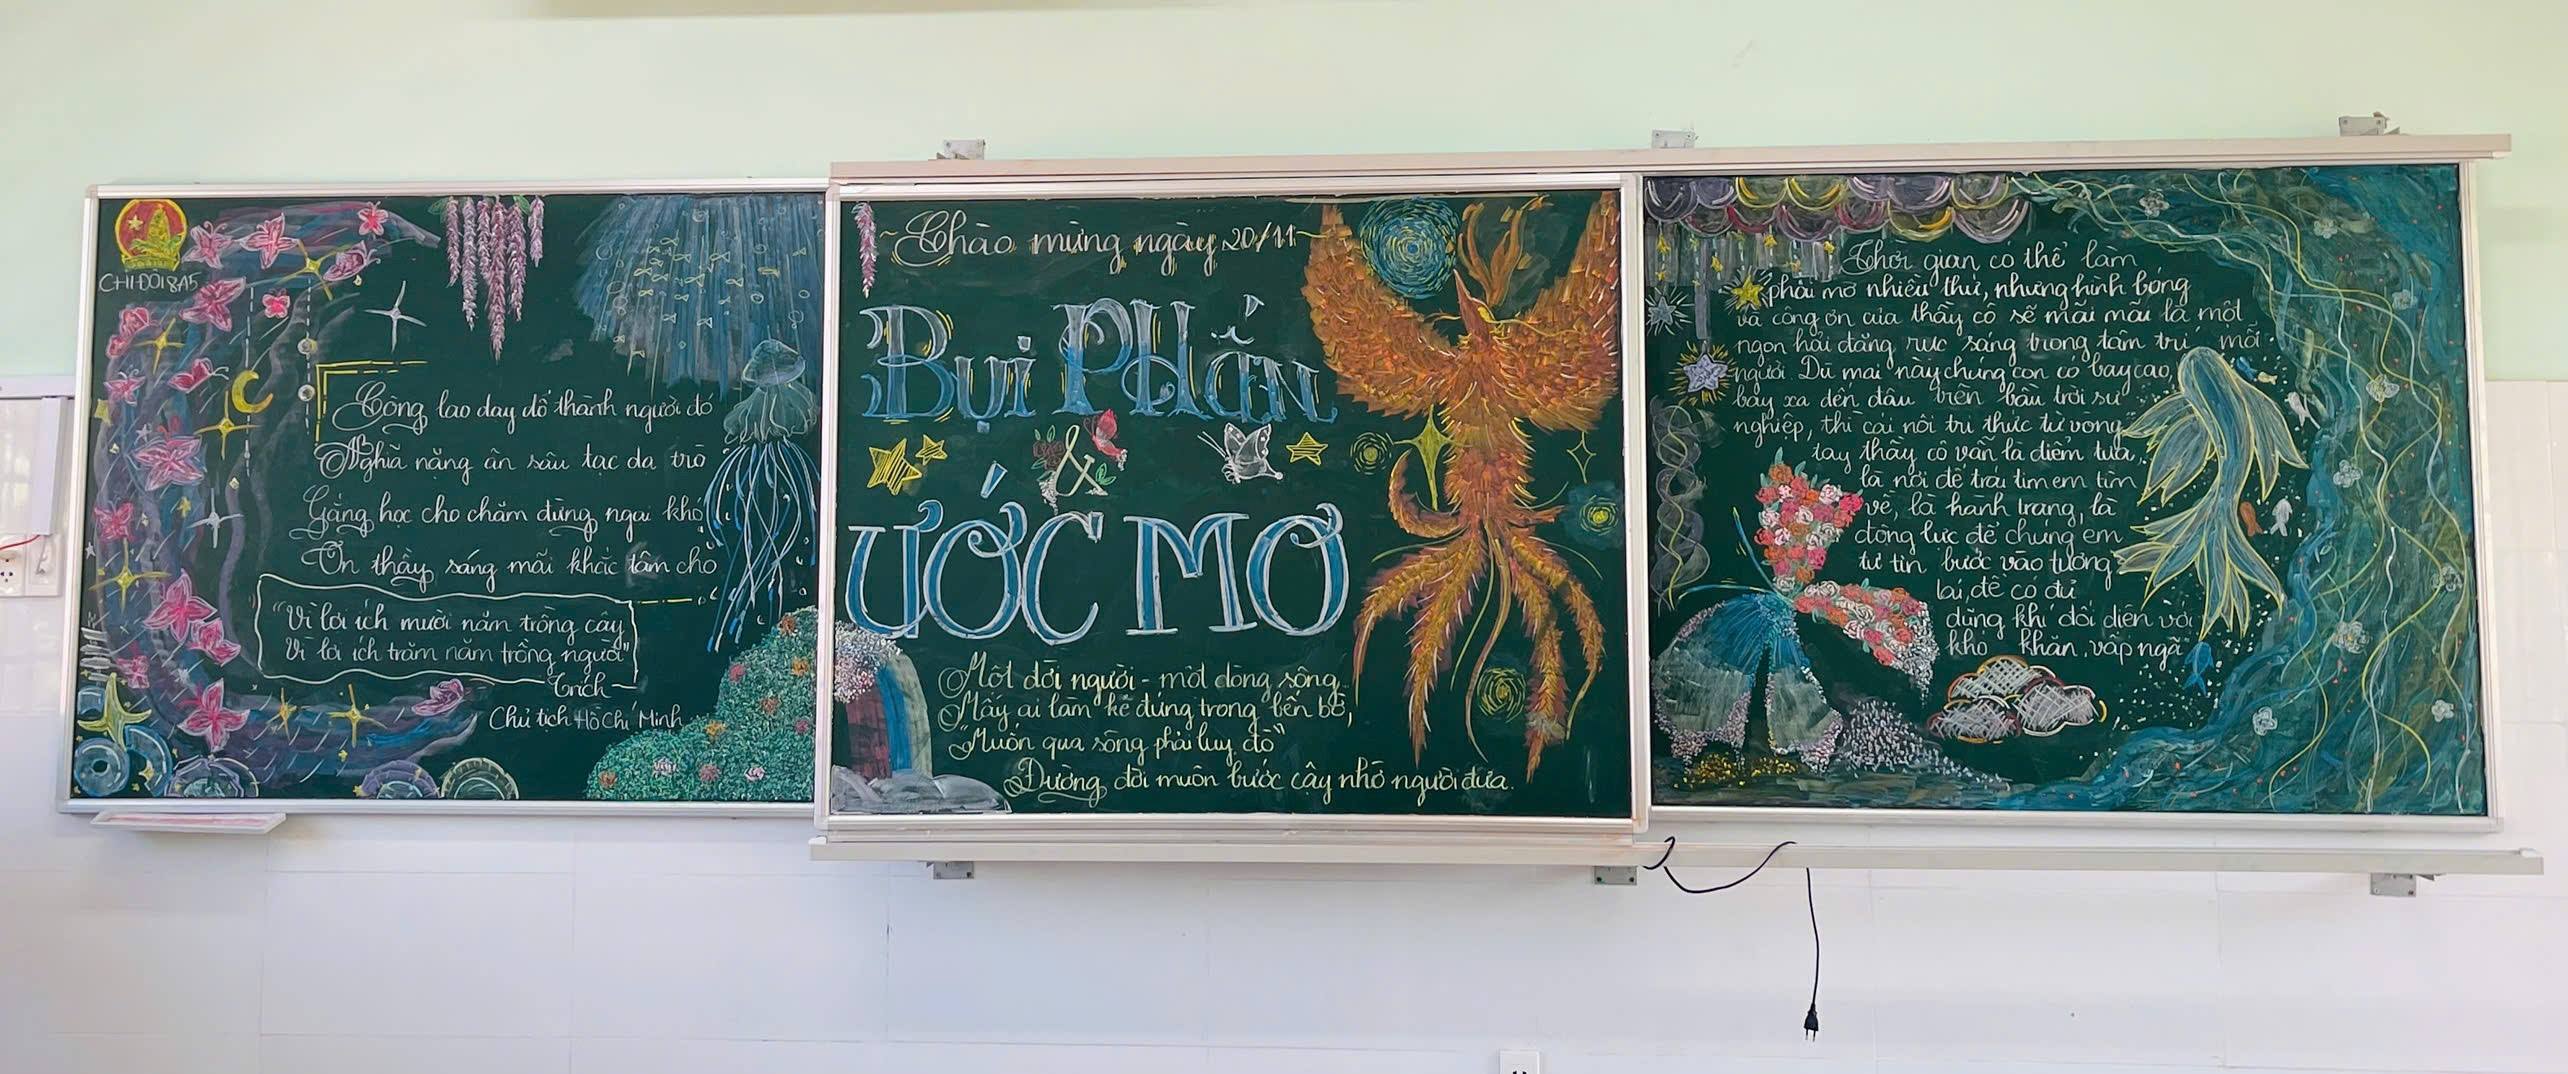 CHI ĐỘI 8A5
Công lao dạy dỗ thành người đó
Nghĩa nặng ân sâu tạc dạ trò
Gắng học cho chăm đừng ngại khó
Ơn thầy sáng mãi khắc tâm cho
"Vì lợi ích mười năm trồng cây
Vì lợi ích trăm năm trồng người"
Trích
Chủ tịch Hồ Chí Minh
~Chào mừng ngày 20/11~
Bụi Phấn
&
ƯỚC MƠ
Một đời người - một dòng sông
Mấy ai làm kẻ đứng trong bến bờ,
"Muốn qua sông phải lụy đò"
Đường đời muôn bước cậy nhờ người đưa.
Thời gian có thể làm
phai mờ nhiều thứ, nhưng hình bóng
và công ơn của thầy cô sẽ mãi mãi là một
ngọn hải đăng rực sáng trong tâm trí mỗi
người. Dù mai này chúng con có bay cao,
bay xa đến đâu trên bầu trời sự
nghiệp, thì cái nôi tri thức từ vòng
tay thầy cô vẫn là điểm tựa,
là nơi để trái tim em tìm
về, là hành trang, là
động lực để chúng em
tự tin bước vào tương
lai, để có đủ
dũng khí đối diện với
khó khăn, vấp ngã